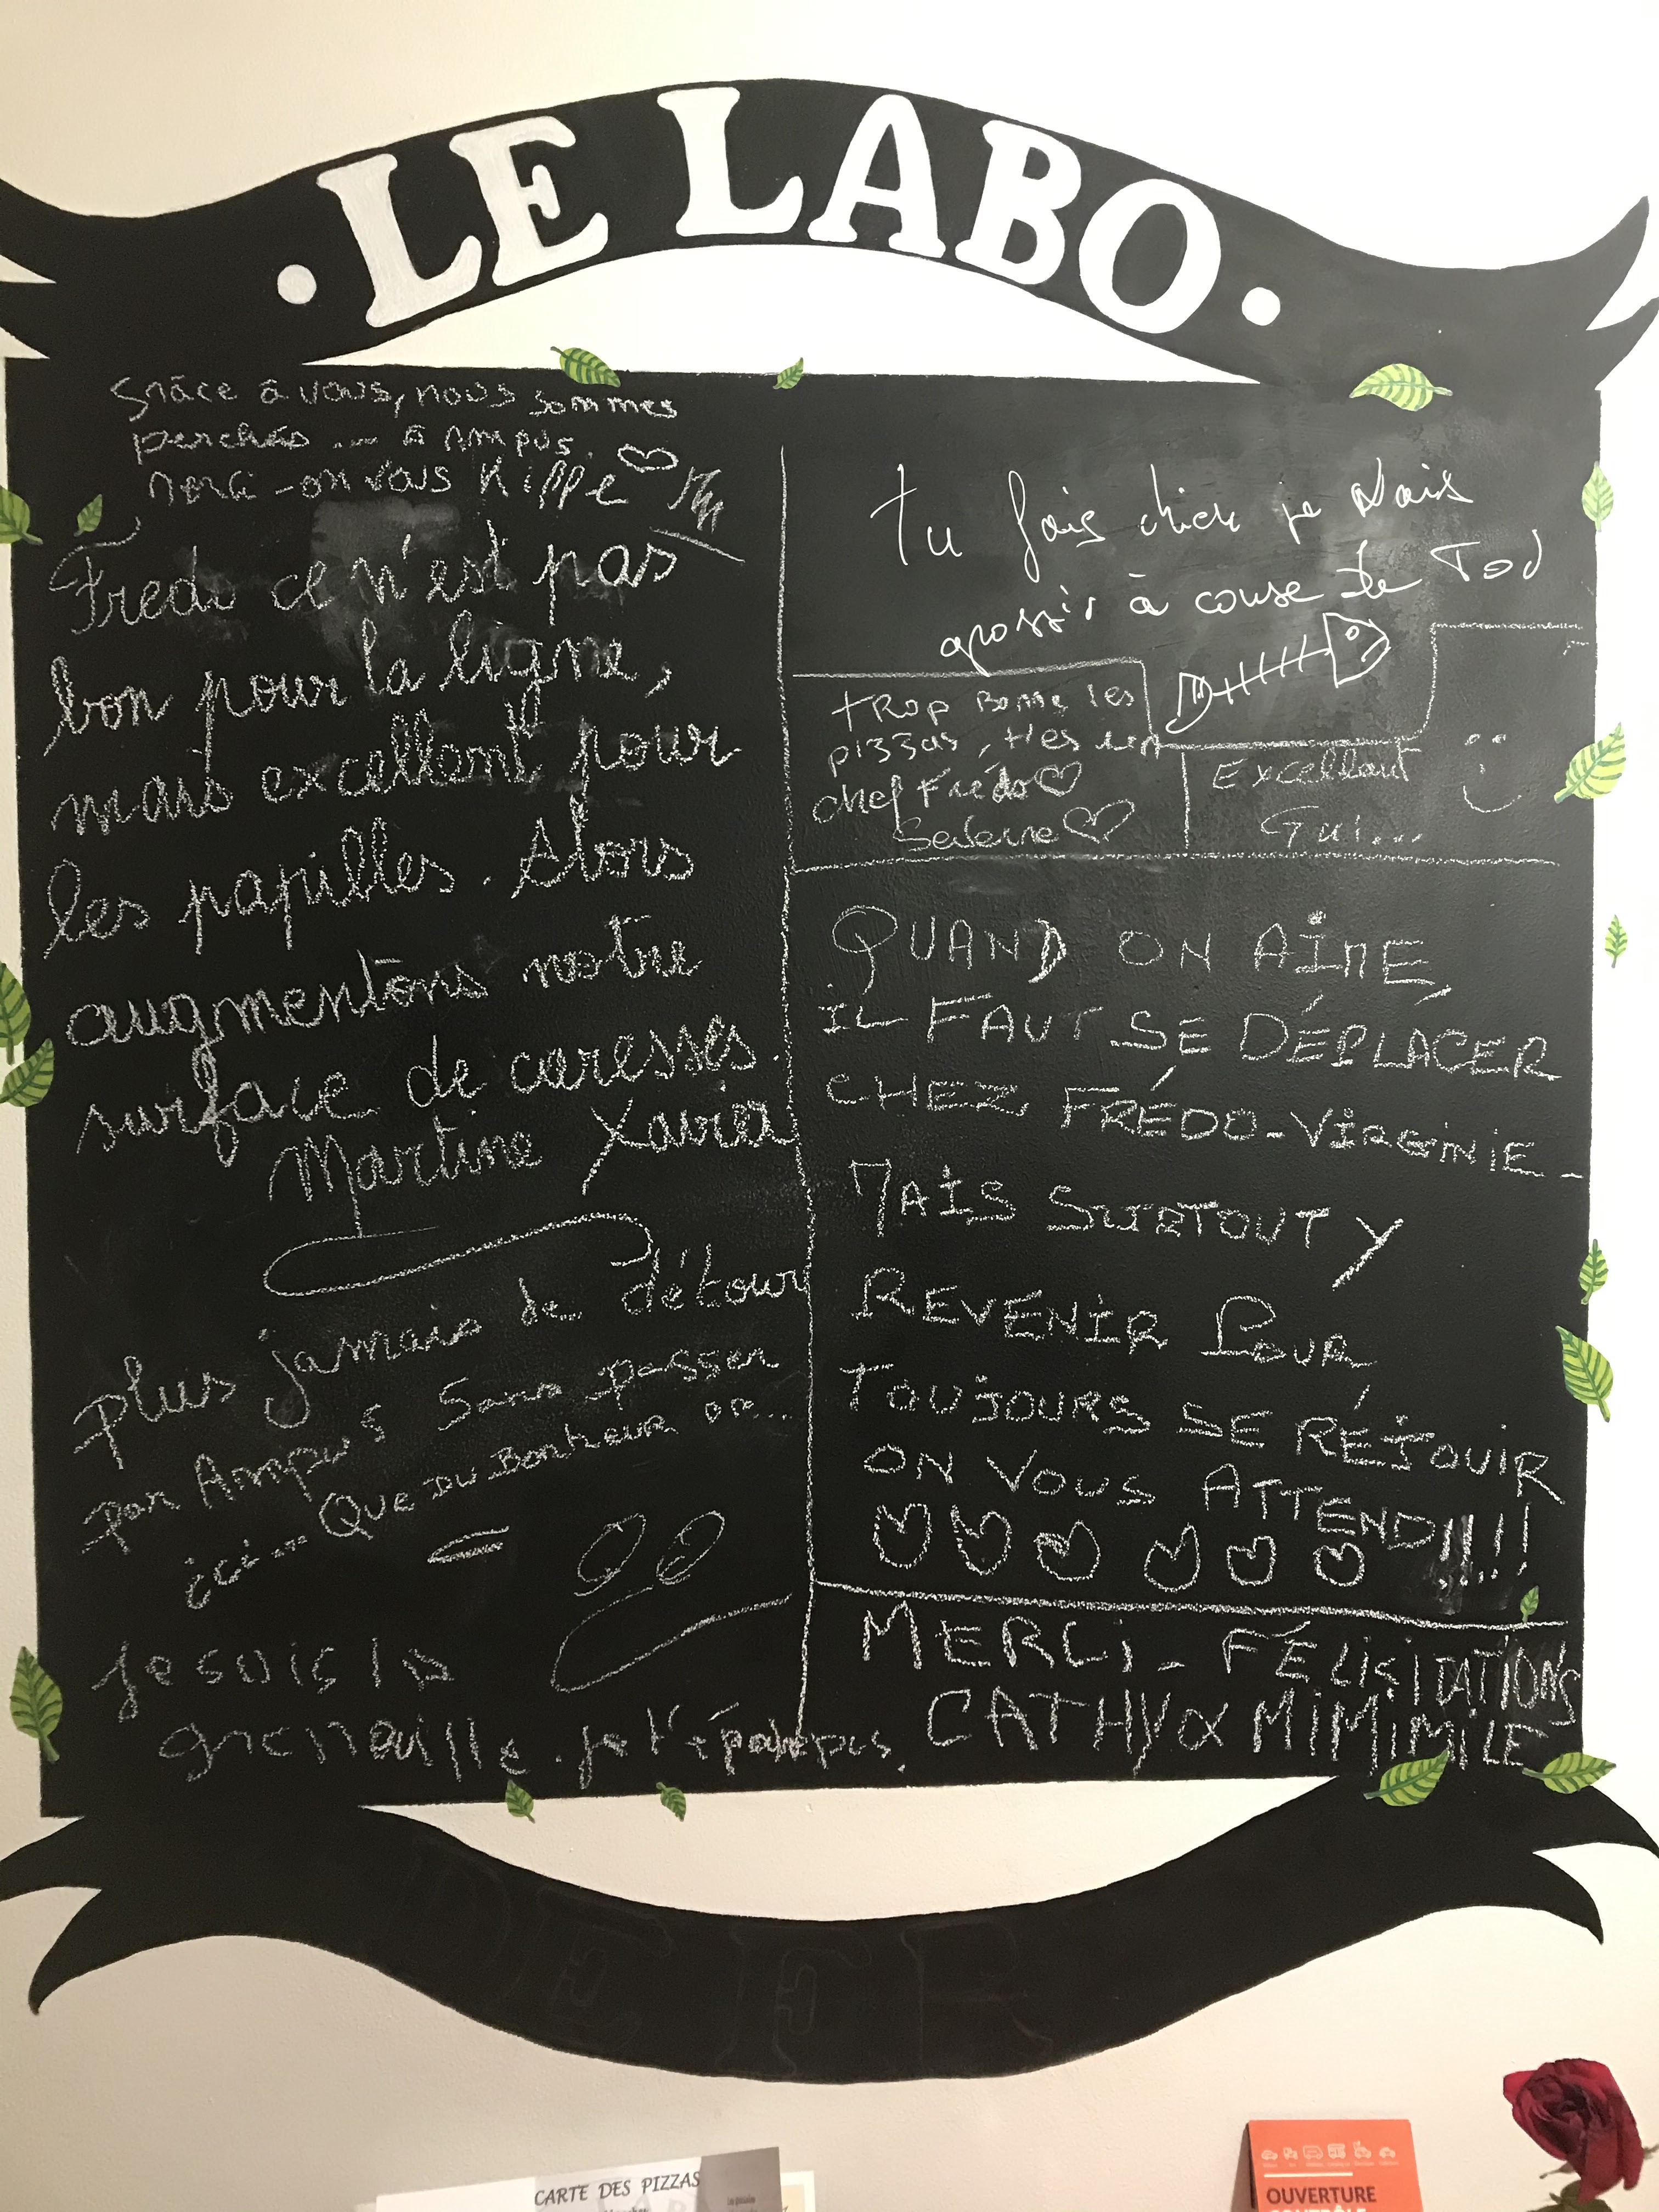 ·LE LABO·
Grâce à vous, nous sommes
perchés ... à Ampus.
Merci - on vous kiffe
Fredo ce n'est pas
bon pour la ligne,
mais excellent pour
les papilles. Alors
augmentons notre
surface de caresses.
Martine Xavier
plus jamais de détour
par Ampus Sans passer
ici... QUE DU BONHEUR
je suis la
grenouille. je t'
tu fais chier je vais
grossir à cause de Toi
TROP Bonne les
pizzas, t'es un
chef Frédo
Excellent
Gui...
QUAND ON AIME,
IL FAUT SE DÉPLACER
CHEZ FRÉDO-VIRGINIE_
MAIS SURTOUT Y
REVENIR POUR
TOUJOURS SE RÉJOUIR
ON VOUS ATTEND!!!!
MERCI_ FÉLISITATIONS
CATHY & MIMIMILE
DE FR
CARTE DES PIZZAS
OUVERTURE
CONTRÔLE